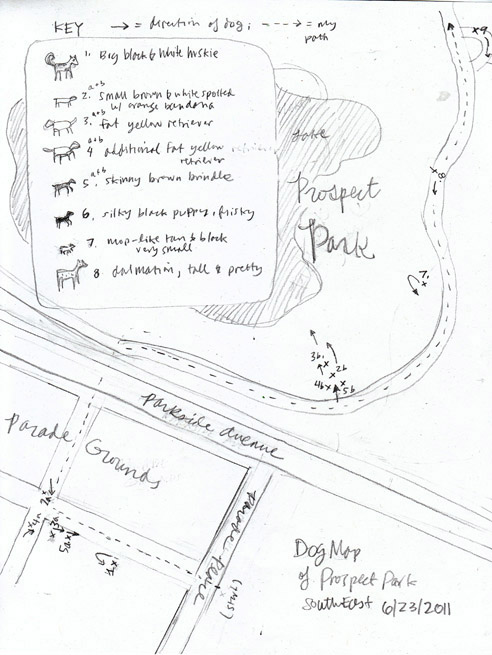 KEY → = direction of dog; ---> = my path
1. Big black & white huskie
a+b
2. small brown & white spotted w/ orange bandana
a+b
3. fat yellow retriever
a+b
4 additional fat yellow retriever
retriever
a+b
5. skinny brown brindle
6. silky black puppy, frisky
7. mop-like tan & black very small
8 dalmation, tall & pretty
lake
Prospect
Park
x8
x7
3b
x
x2b
4bx
x5b
Parkside Avenue
Parade
Grounds
Parade Place
Dog Map
of Prospect Park
SouthEast 6/23/2011